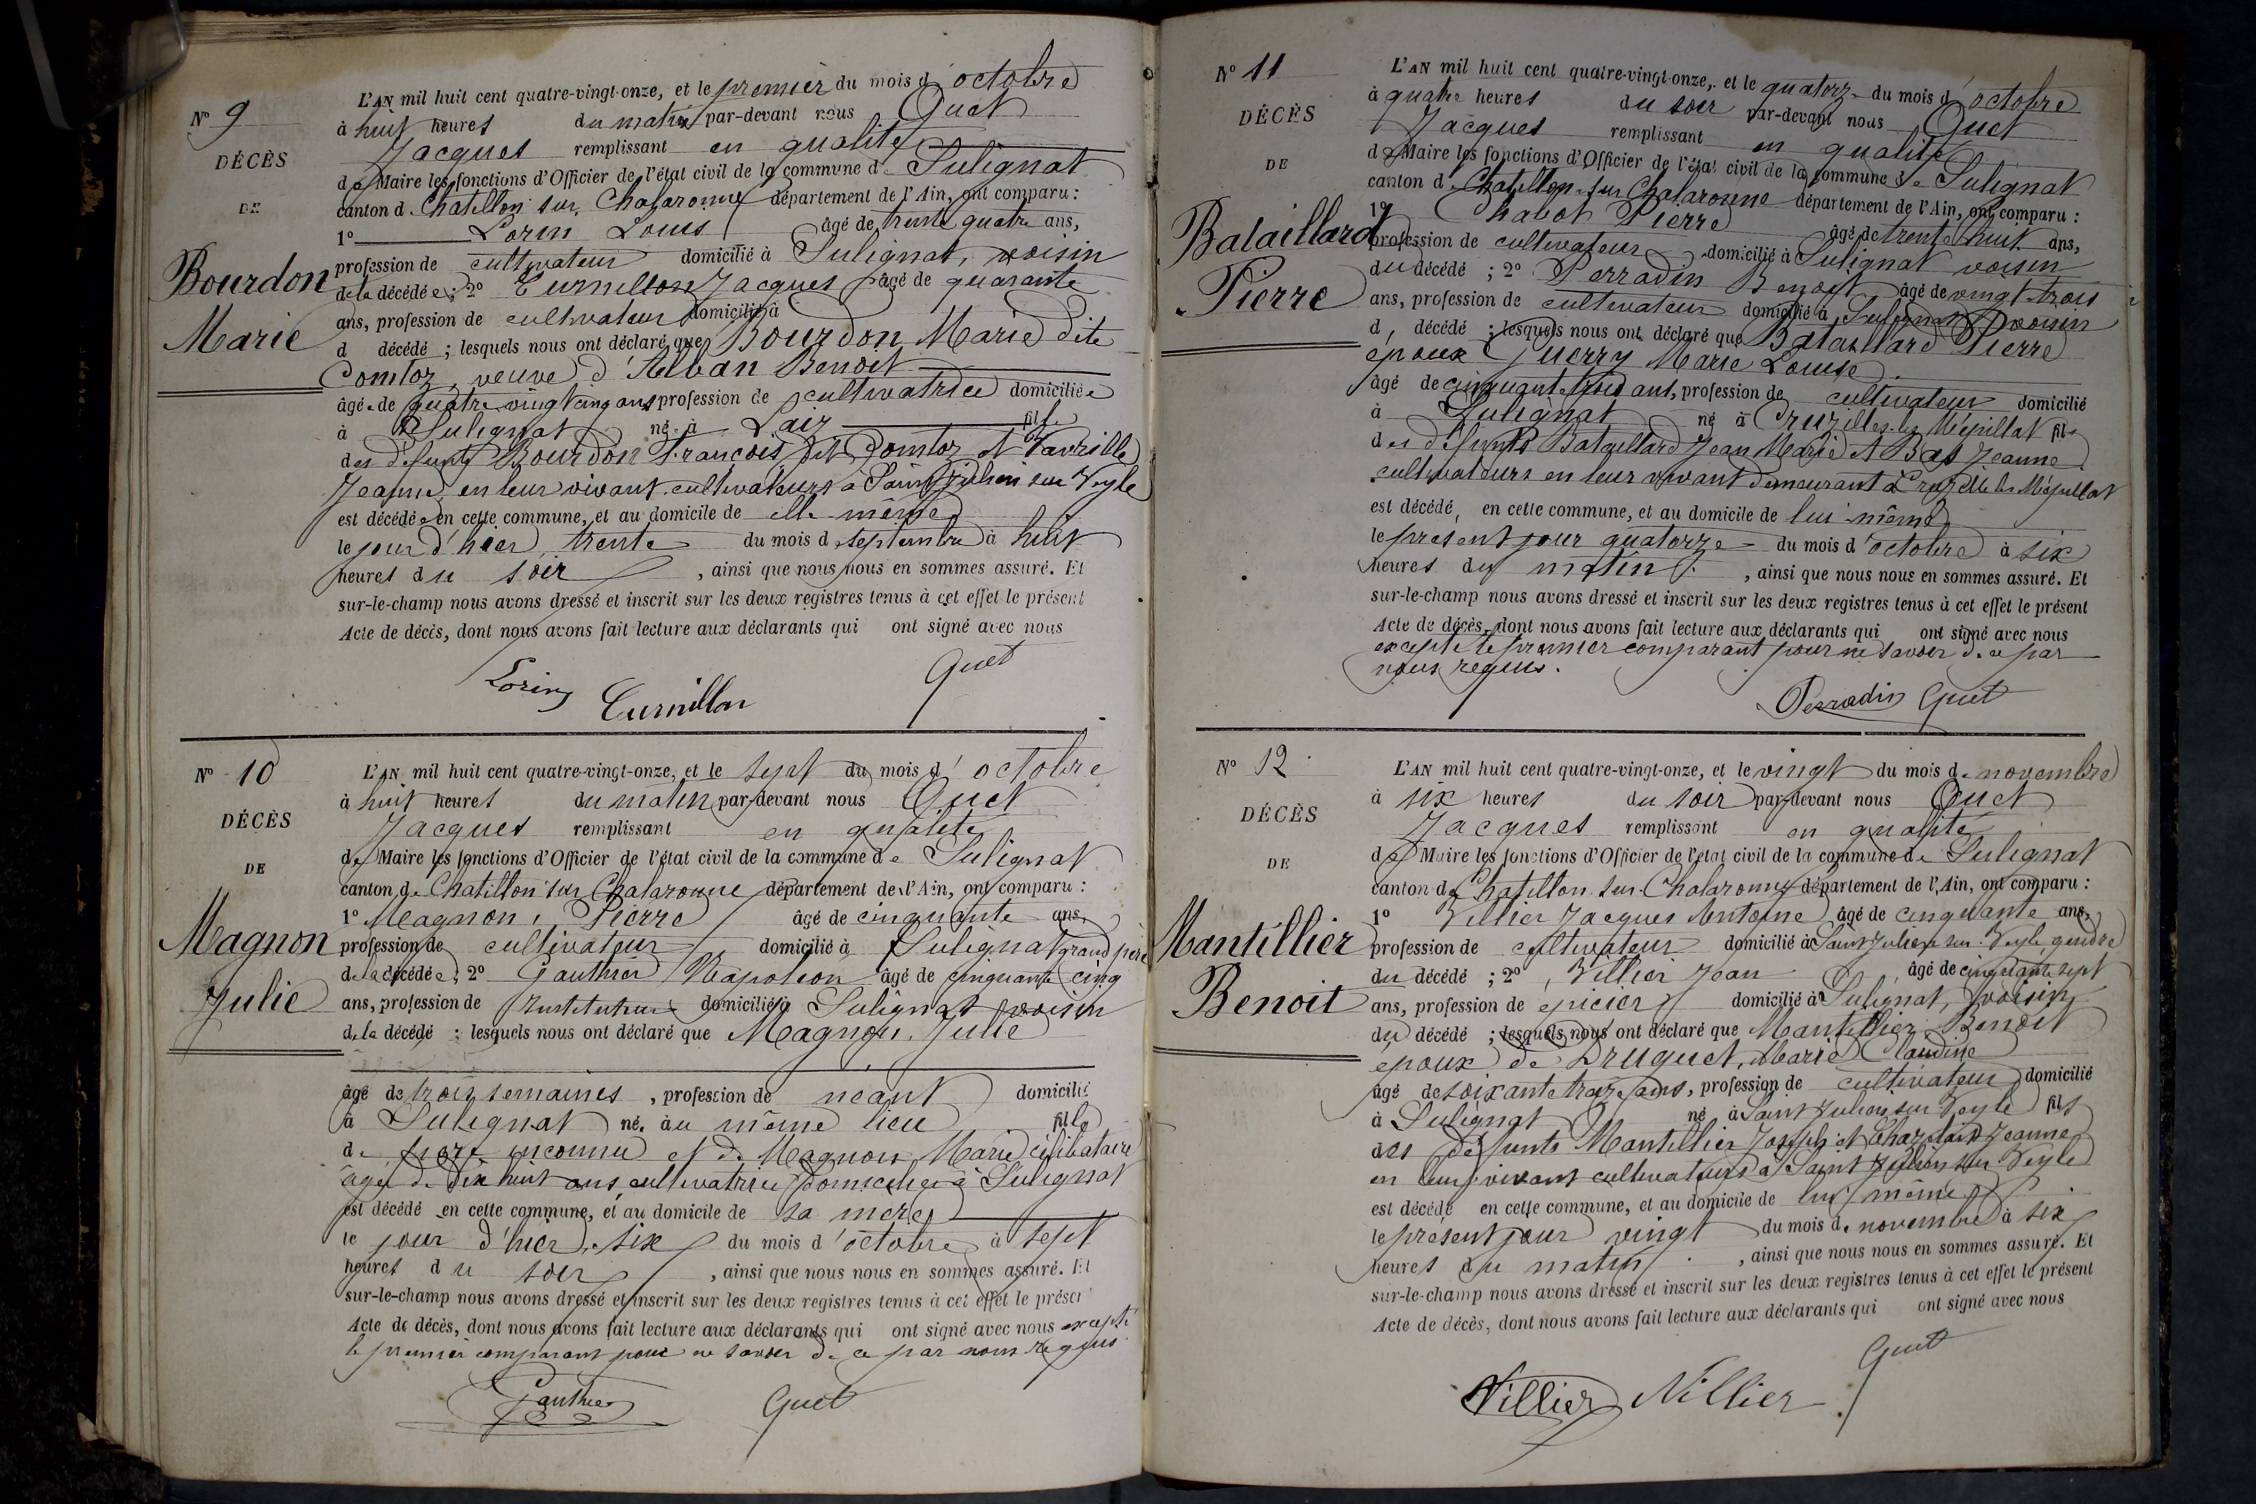 N° 9
DÉCÈS
DE
Bourdon
Marie
L'AN mil huit cent quatre-vingt-onze, et le premier du mois d'octobre
à huit heures du matin par-devant nous Quet
Jacques remplissant en qualité
de Maire les fonctions d'Officier de l'état civil de la commune de Sulignat
canton de Chatillon sur Chalaronne département de l'Ain, ont comparu :
1° Lorin Louis âgé de trente quatre ans,
profession de cultivateur domicilié à Sulignat, voisin
de la décédée ; 2° Curnillon Jacques âgé de quarante
ans, profession de cultivateur domicilié à
d décédé ; lesquels nous ont déclaré que Bourdon Marie dite
Comtoz, veuve d'Alban Benoit
âgée de quatre vingt cinq ans profession de cultivatrice domiciliée
à Sulignat né à Laiz fille
des défunts Bourdon François dit Comtoz et Favrille
Jeanne, en leur vivant cultivateurs à Saint Julien sur Veyle
est décédée en cette commune, et au domicile de elle même
le jour d'hier, trente du mois de septembre à huit
heures du soir, ainsi que nous nous en sommes assuré. Et
sur-le-champ nous avons dressé et inscrit sur les deux registres tenus à cet effet le présent
Acte de décès, dont nous avons fait lecture aux déclarants qui ont signé avec nous
Lorin Curnillon Quet
N° 10
DÉCÈS
DE
Magnon
Julie
L'AN mil huit cent quatre-vingt-onze, et le sept du mois d'octobre
à huit heures du matin par-devant nous Quet
Jacques remplissant en qualité
de Maire les fonctions d'Officier de l'état civil de la commune de Sulignat
canton de Chatillon sur Chalaronne département de l'Ain, ont comparu :
1° Magnon, Pierre âgé de cinquante ans,
profession de cultivateur domicilié à Sulignat grand père
de la décédée ; 2° Gauthier Napoléon âgé de cinquante cinq
ans, profession de Instituteur domicilié à Sulignat voisin
de la décédé ; lesquels nous ont déclaré que Magnon Julie
âgé de trois semaines, profession de néant domicilié
à Sulignat né, au même lieu fille
de père inconnu et de Magnon Marie célibataire
âgée de dix huit ans, cultivatrice domiciliée à Sulignat
est décédé en cette commune, et au domicile de sa mère
le jour d'hier, six du mois d'octobre à sept
heures du soir, ainsi que nous nous en sommes assuré. Et
sur-le-champ nous avons dressé et inscrit sur les deux registres tenus à cet effet le présent
Acte de décès, dont nous avons fait lecture aux déclarants qui ont signé avec nous excepté
le premier comparant pour ne savoir de ce par nous requis
Gauthier Quet
N° 11
DÉCÈS
DE
Bataillard
Pierre
L'AN mil huit cent quatre-vingt-onze, et le quatorze du mois d'octobre
à quatre heures du soir par-devant nous Quet
Jacques remplissant en qualité
de Maire les fonctions d'Officier de l'état civil de la commune de Sulignat
canton de Chatillon sur Chalaronne département de l'Ain, ont comparu :
1° Chabot Pierre âgé de trente huit ans,
profession de cultivateur domicilié à Sulignat voisin
du décédé ; 2° Perradin Benoit âgé de vingt-trois
ans, profession de cultivateur domicilié à Sulignat voisin
d, décédé ; lesquels nous ont déclaré que Bataillard Pierre
époux Guerry Marie Louise
âgé de cinquante trois ans, profession de cultivateur domicilié
à Sulignat né à Cruzilles les Mépillat fils
des défunts Bataillard Jean Marie et Bas Jeanne
cultivateurs en leur vivant demeurant à Cruzille les Mépillat
est décédé, en cette commune, et au domicile de lui même
le présent jour quatorze du mois d'octobre à six
heures du matin, ainsi que nous nous en sommes assuré. Et
sur-le-champ nous avons dressé et inscrit sur les deux registres tenus à cet effet le présent
Acte de décès, dont nous avons fait lecture aux déclarants qui ont signé avec nous
excepté le premier comparant pour ne savoir de ce par
nous requis.
Perradin Quet
N° 12
DÉCÈS
DE
Mantillier
Benoit
L'AN mil huit cent quatre-vingt-onze, et le vingt du mois de novembre
à six heures du soir par-devant nous Quet
Jacques remplissant en qualité
de Maire les fonctions d'Officier de l'état civil de la commune de Sulignat
canton de Chatillon sur Chalaronne département de l'Ain, ont comparu :
1° Villier Jacques Antoine âgé de cinquante ans,
profession de cultivateur domicilié à Saint Julien sur Veyle gendre
du décédé ; 2° Villier Jean âgé de cinquante sept
ans, profession de épicier domicilié à Sulignat, voisin
du décédé ; lesquels nous ont déclaré que Mantillier Benoit
époux de Druguet, Marie Claudine
âgé de soixante treize ans, profession de cultivateur domicilié
à Sulignat né à Saint Julien sur Veyle fils
des défunts Mantillier Joseph et Jeanne
en leur vivant cultivateurs à Saint Julien sur Veyle
est décédé en cette commune, et au domicile de lui même
le présent jour vingt du mois de novembre à six
heures du matin, ainsi que nous nous en sommes assuré. Et
sur-le-champ nous avons dressé et inscrit sur les deux registres tenus à cet effet le présent
Acte de décès, dont nous avons fait lecture aux déclarants qui ont signé avec nous
Villier Villier Quet